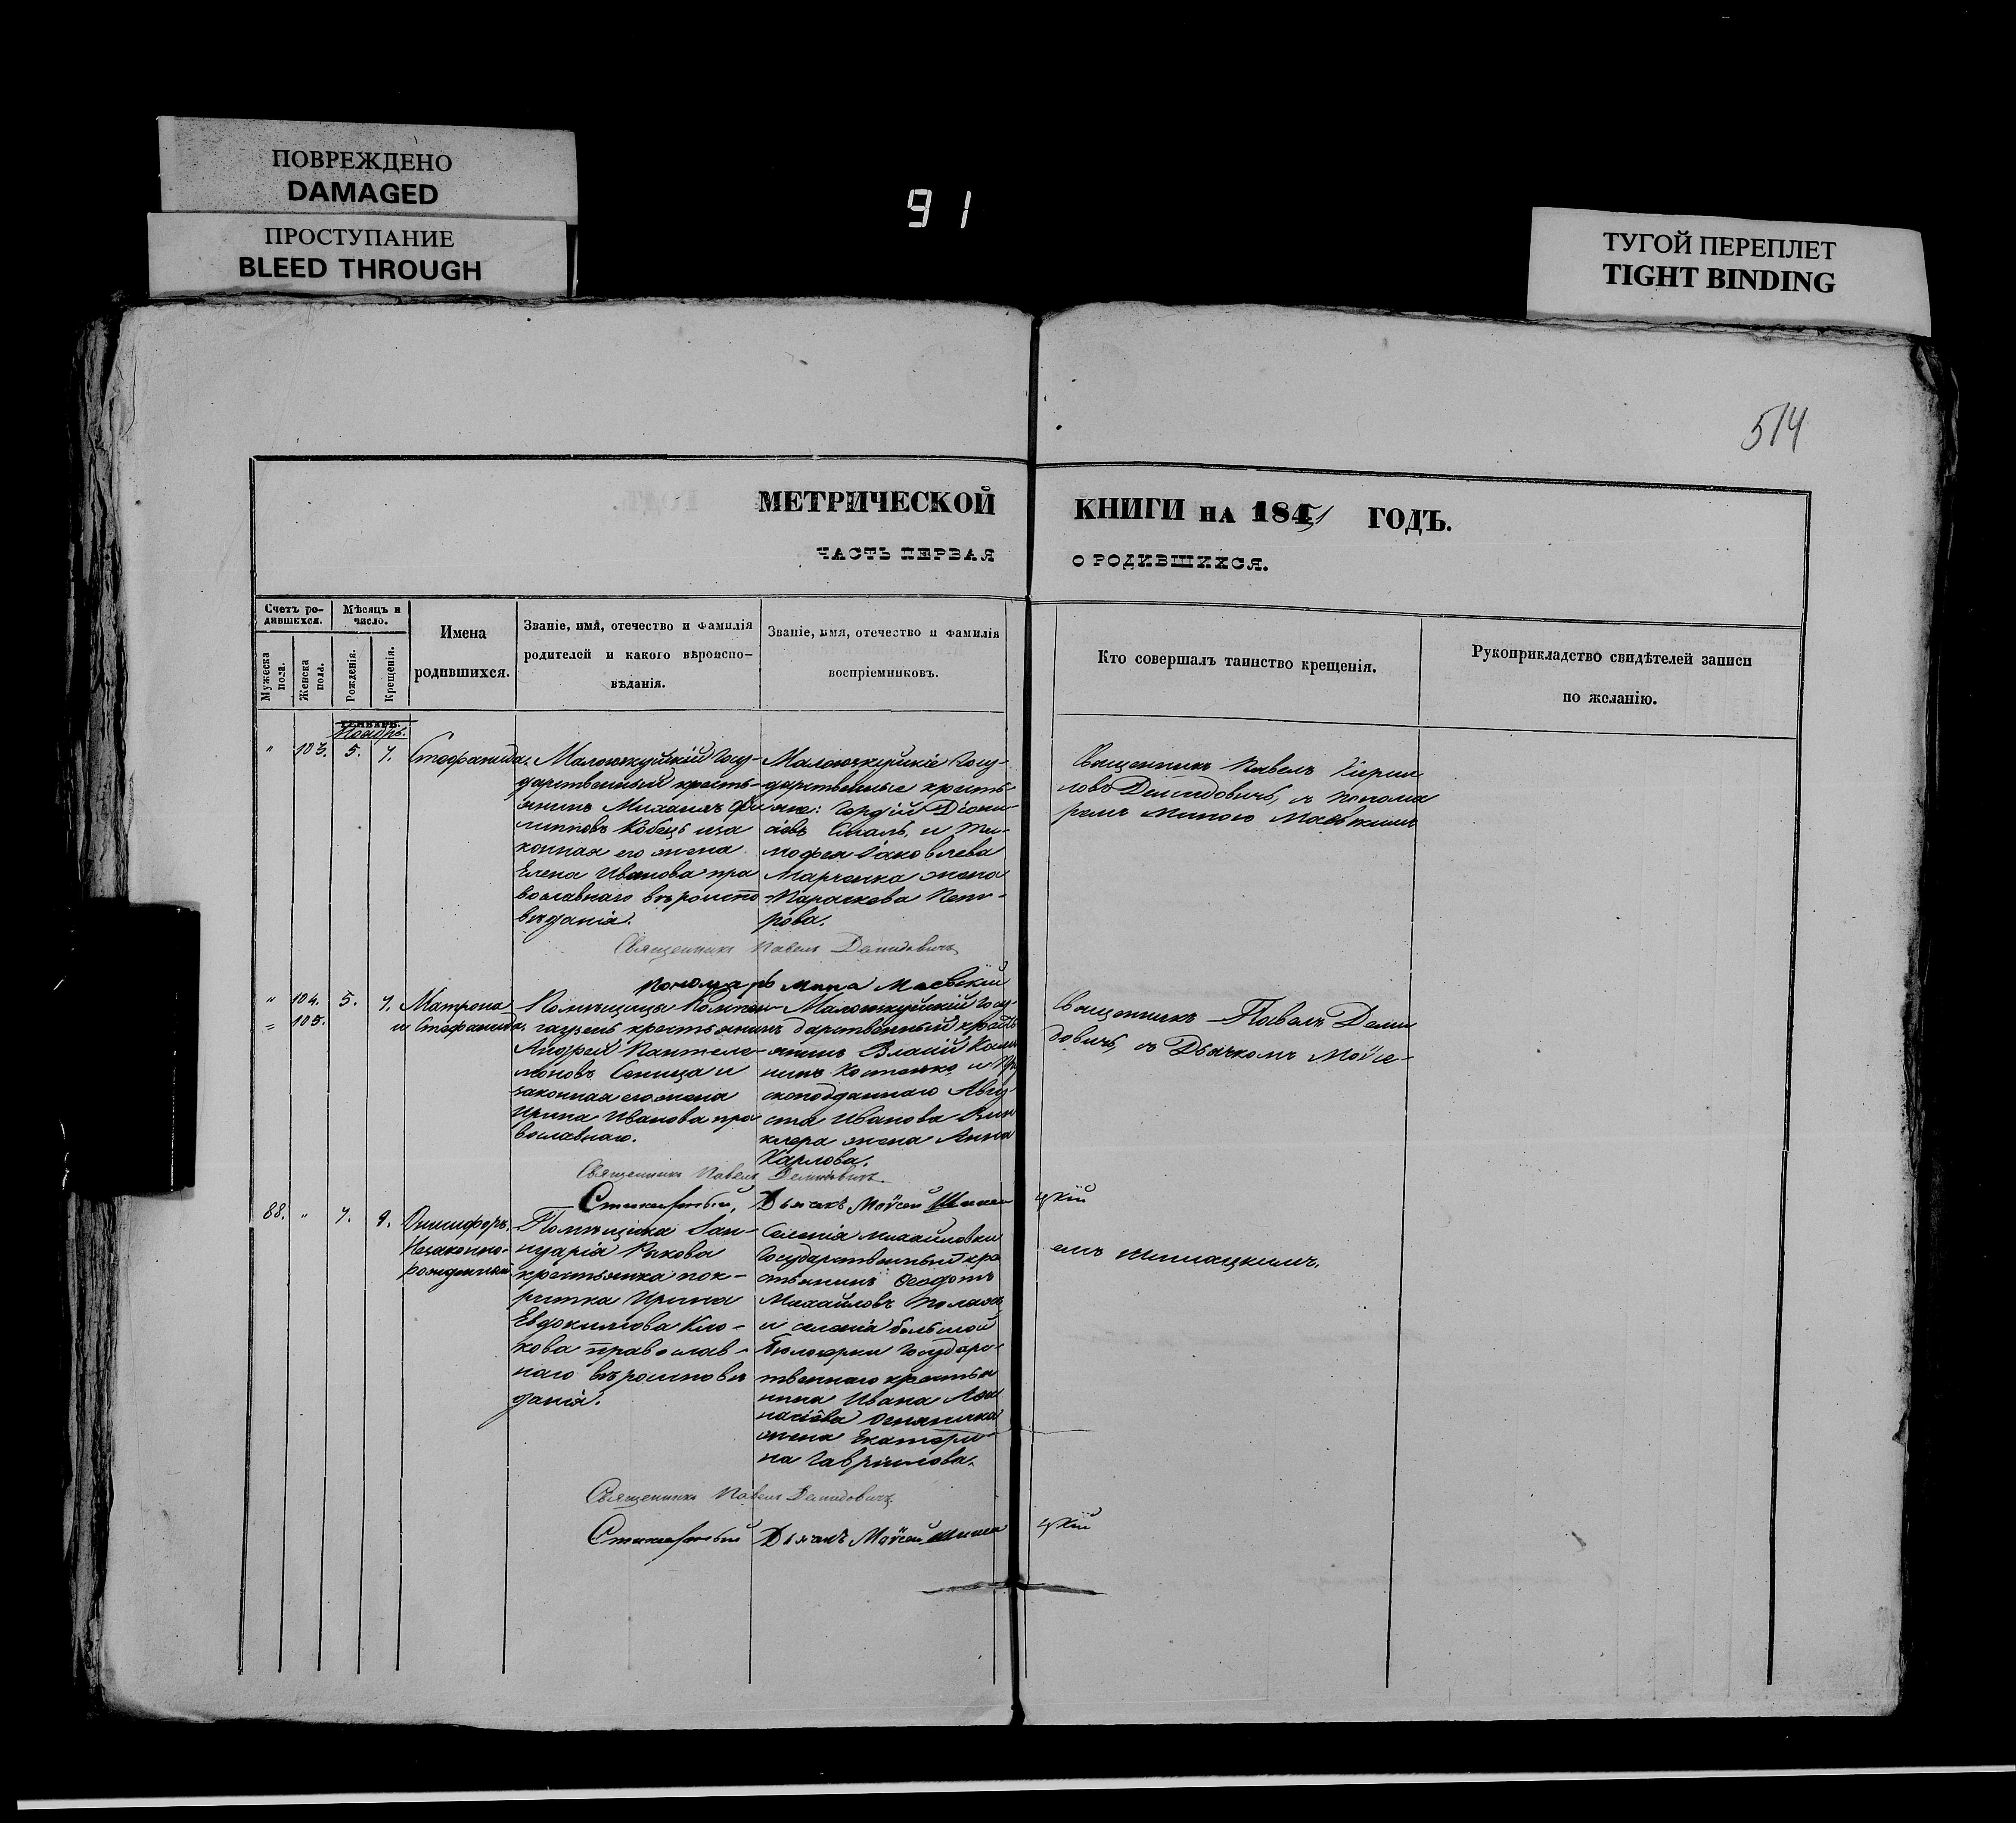 ПОВРЕЖДЕНО
DAMAGED
ПРОСТУПАНИЕ
BLEED THROUGH
91
ТУГОЙ ПЕРЕПЛЕТ
TIGHT BINDING
514
МЕТРИЧЕСКОЙ КНИГИ НА 1851 ГОДЪ.
ЧАСТЬ ПЕРВАЯ О РОДИВШИХСЯ.
Счетъ ро-
дившихся.
Мужеска
пола.
Женска
пола.
Мѣсяцъ и
число.
Рожденія.
Крещенія.
Имена
родившихся.
Званіе, имя, отечество и фамилія
родителей и какого вѣроиспо-
вѣданія.
Званіе, имя, отечество и фамилія
воспріемниковъ.
Кто совершалъ таинство крещенія.
Рукоприкладство свидѣтелей записи
по желанію.
ГЕНВАРЬ.
Ноябрь.
" 103. 5. 7.
Стефанида.
Госу-
дарственный кресть-
янинъ Михаилъ Фи
липповъ Кобецъ и за
конная его жена
Елена Иванова пра
вославнаго вѣроиспо
вѣданія.
Госу-
дарственные кресть
яне: Гордій Діони-
сіевъ и Ти-
мофея Іаковлева
Марченка жена
Параскева Пет-
рова.
Священникъ Павелъ Кирил
ловъ Демидовичъ, съ понома
ремъ Миною Маевскимъ
Священникъ Павелъ Демидовичъ
Пономарь Мина Маевскій
" 104. 5. 7.
= 105.
Матрона
и Стефанида.
Помѣщицы
крестьянинъ
Андрей Пантеле-
моновъ и
законная его жена
Ирина Иванова пра
вославнаго.
Госу-
дарственный кресть
янинъ Власій
нинъ Костенко и
скоподданнаго Авгу-
ста Иванова Вин
клера жена Анна
Карлова.
Священникъ Павелъ Деми
довичъ, съ Дьячкомъ Мойсе-
емъ Шишацкимъ.
Священникъ Павелъ Демидовичъ
Стихарный Дьячекъ Мойсей Шишацкій
88. " 7. 9.
Онисифоръ.
Незаконно-
рожденный
Помѣщика
нуарія Рикова
крестьянка пок-
ритка Ирина
Евдокимова Кло-
кова православ-
наго вѣроисповѣ
данія.
Селенія Михайловки
Государственный кре
стьянинъ Ѳеодотъ
Михайловъ
и селенія большой
Бѣлозерки Государс-
твеннаго крестья
нина Ивана Аѳа
насіева
жена Екатери-
на Гавриилова.
Священникъ Павелъ Демидовичъ
Стихарный Дьячекъ Мойсей Шишацкій